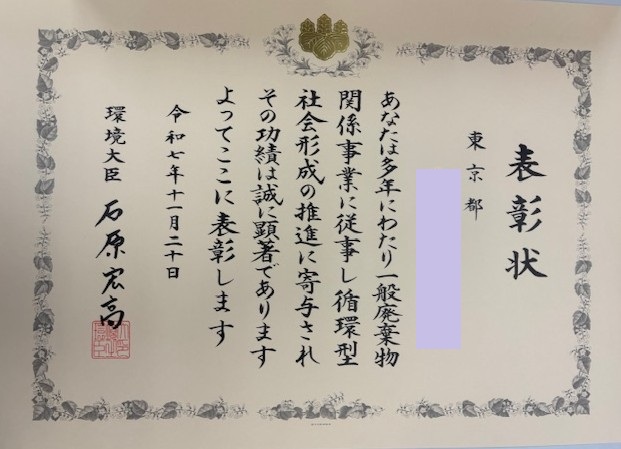 表彰状
東京都
あなたは多年にわたり一般廃棄物
関係事業に従事し循環型
社会形成の推進に寄与され
その功績は誠に顕著であります
よってここに表彰します
令和七年十一月二十日
環境大臣 石原宏高